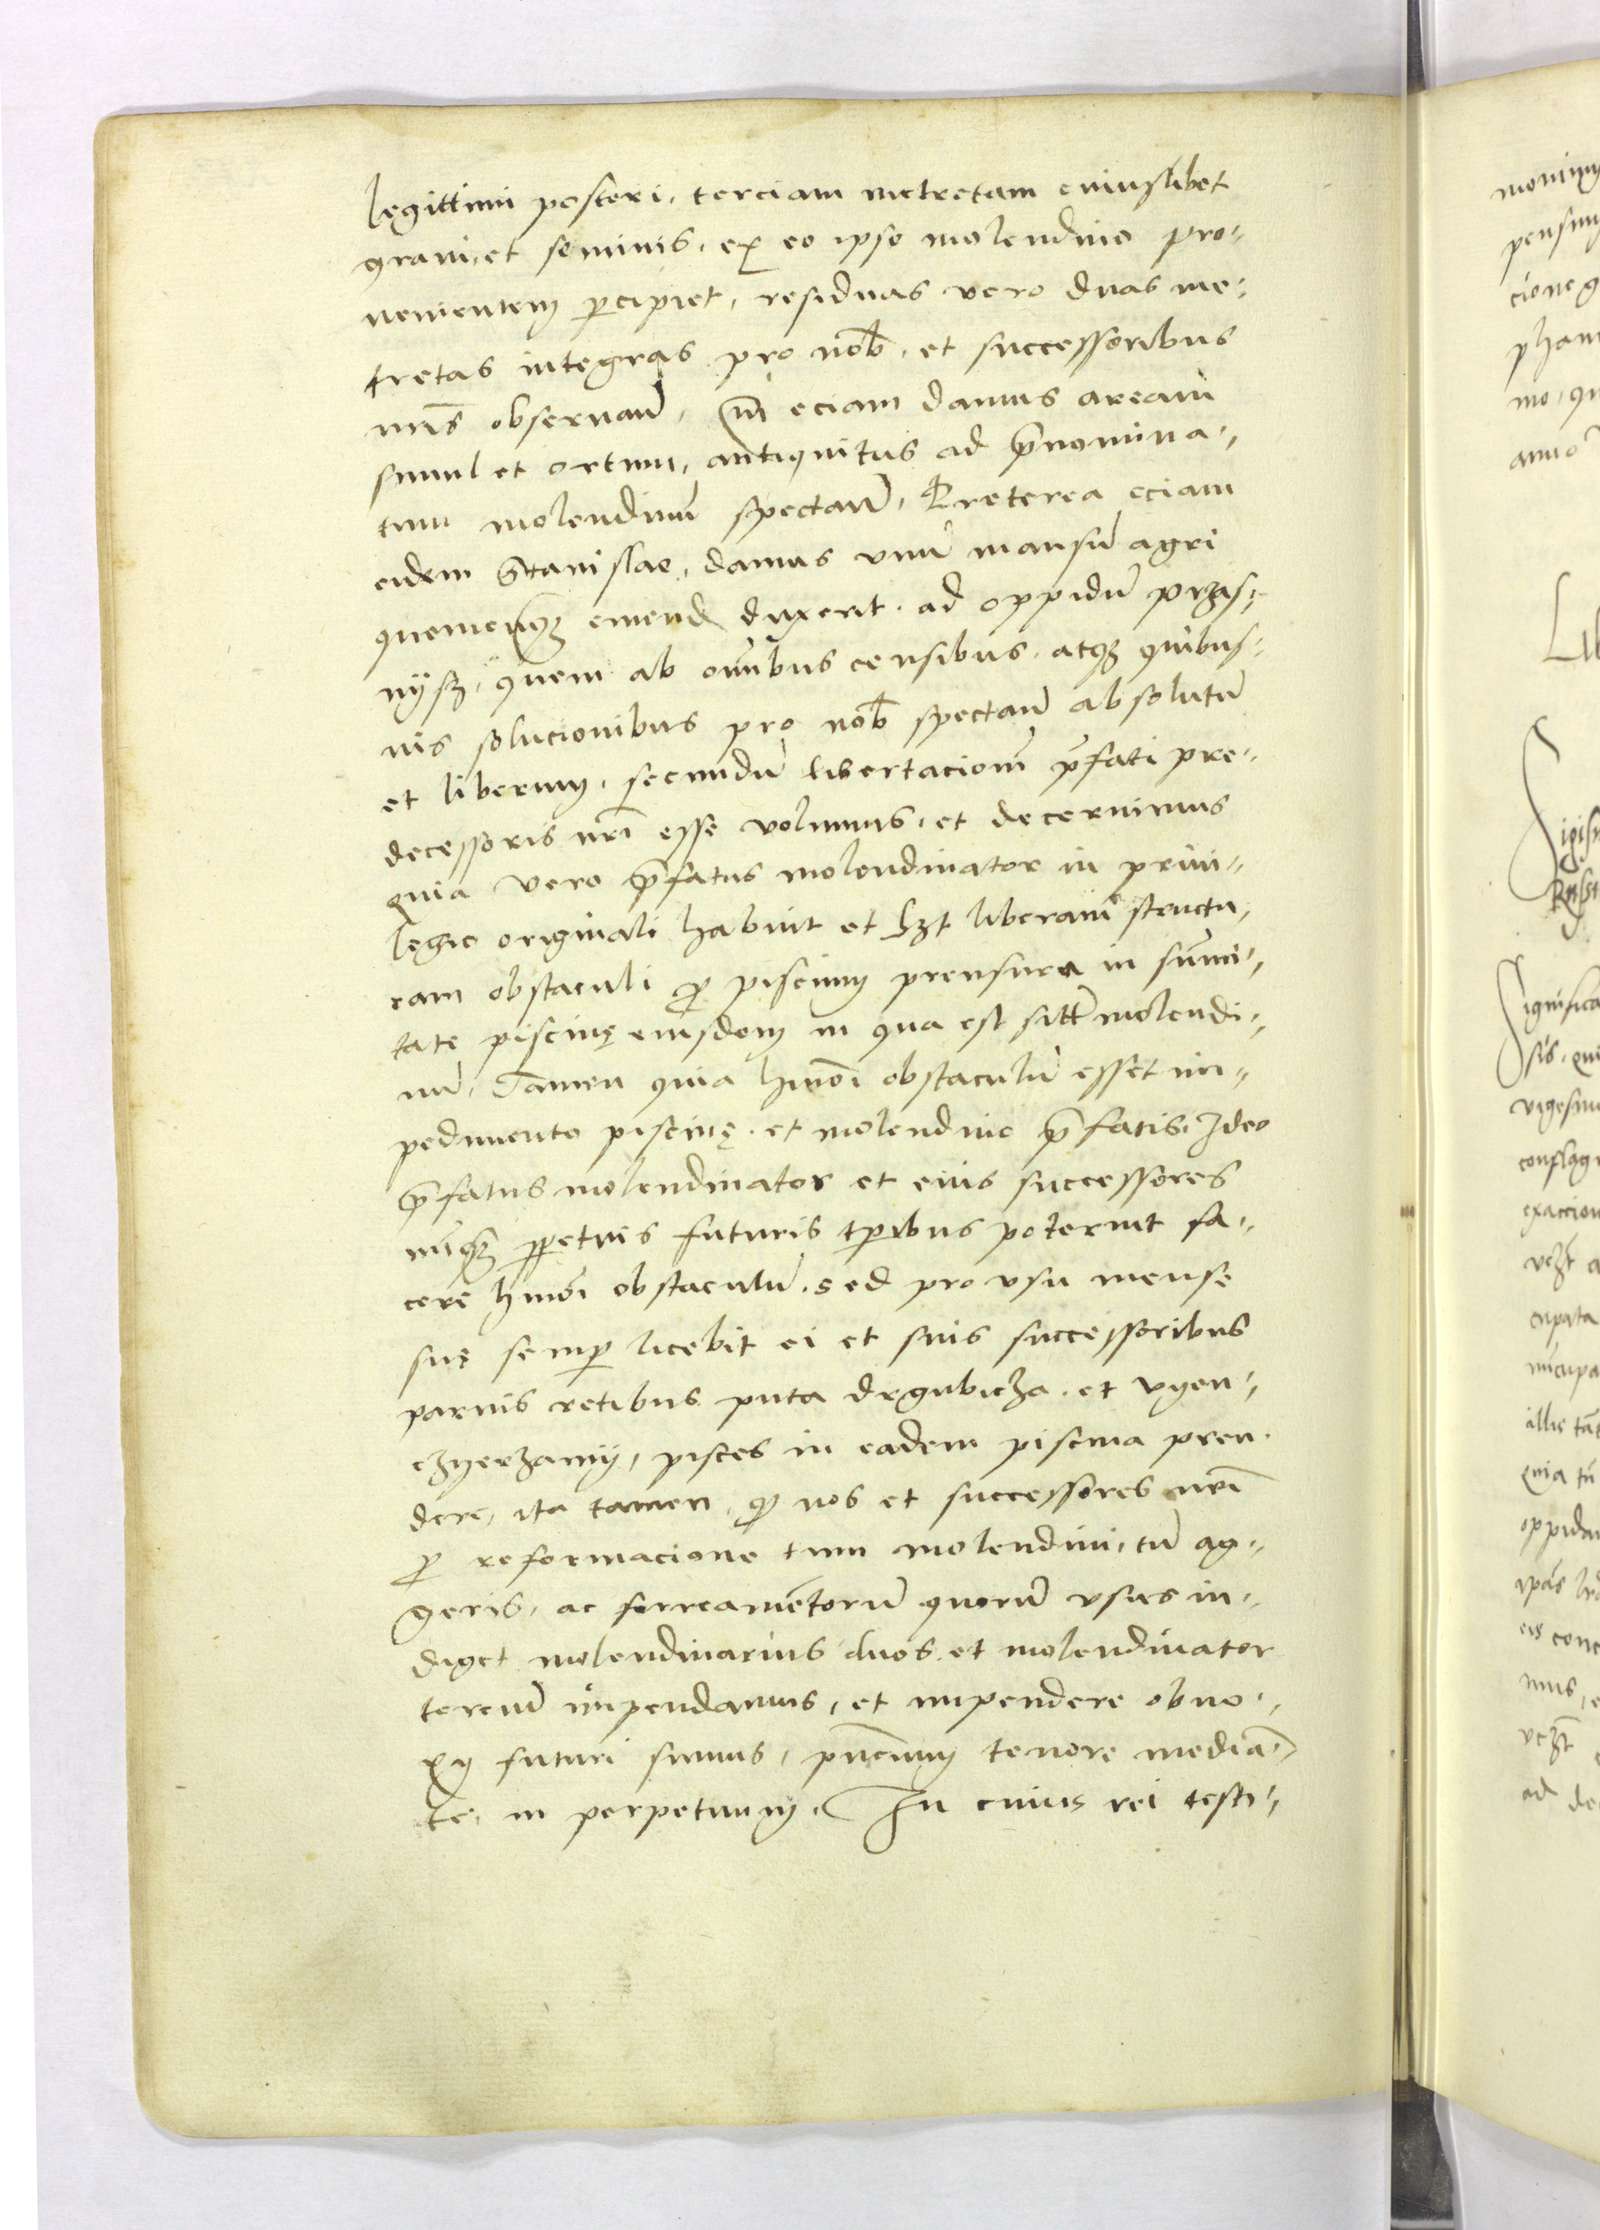 legittimi posteri, terciam metretam cuiuslibet
grani, et seminis, ex eo ipso molendino pro-
uenientem ꝑcipiet, residuas vero duas me-
tretas integras pro nob̃, et successoribus
nr̃is obseruan̄, eciam damus aream
simul et ortum, antiquitus ad p̄nomina-
tum molendinū spectan̄, Preterea eciam
eidem Stanislao, damus vnū mansū agri
quemcunqȝ emend duxerit, ad oppidū Przas-
nysz, quem ab om̄ibus censibus, atqȝ quibus-
uis solucionibus pro nob̃ spectan̄ absolutū
et liberum, secundū libertacionē p̄fati pre-
decessoris nr̃i esse volumus, et decernimus
quia vero p̄fatus molendinator in priui-
legio originali habuit et hȝt liberam structu-
ram obstaculi ꝓ piscium prensura in sum̄i-
tate piscinę eiusdem in qua est sitū molendi-
nū, Tamen quia hmōi obstaculū esset im-
pedimento piscinę, et molendino p̄fatis, Ideo
p̄fatus molendinator et eius successores
nūqȝ ꝑpetuis futuris tꝑibus poterunt fa-
cere hmōi obstaculū, sed pro vsu mense
suę semꝑ licebit ei et suis successoribus
paruis retibus puta drgubicza, et vyen-
czyerzamy, pisces in eadem piscina pren-
dere, ita tamen, ꝙ nos et successores nr̃i
ꝓ reformacione tum molendini, tū ag-
geris, ac ferramentorū quorū vsus in-
diget molendinarius duos, et molendinator
terciū impendamus, et impendere obno-
xy futuri sumus, pn̄cium tenore median̄-
te, in perpetuum. In cuius rei testi-